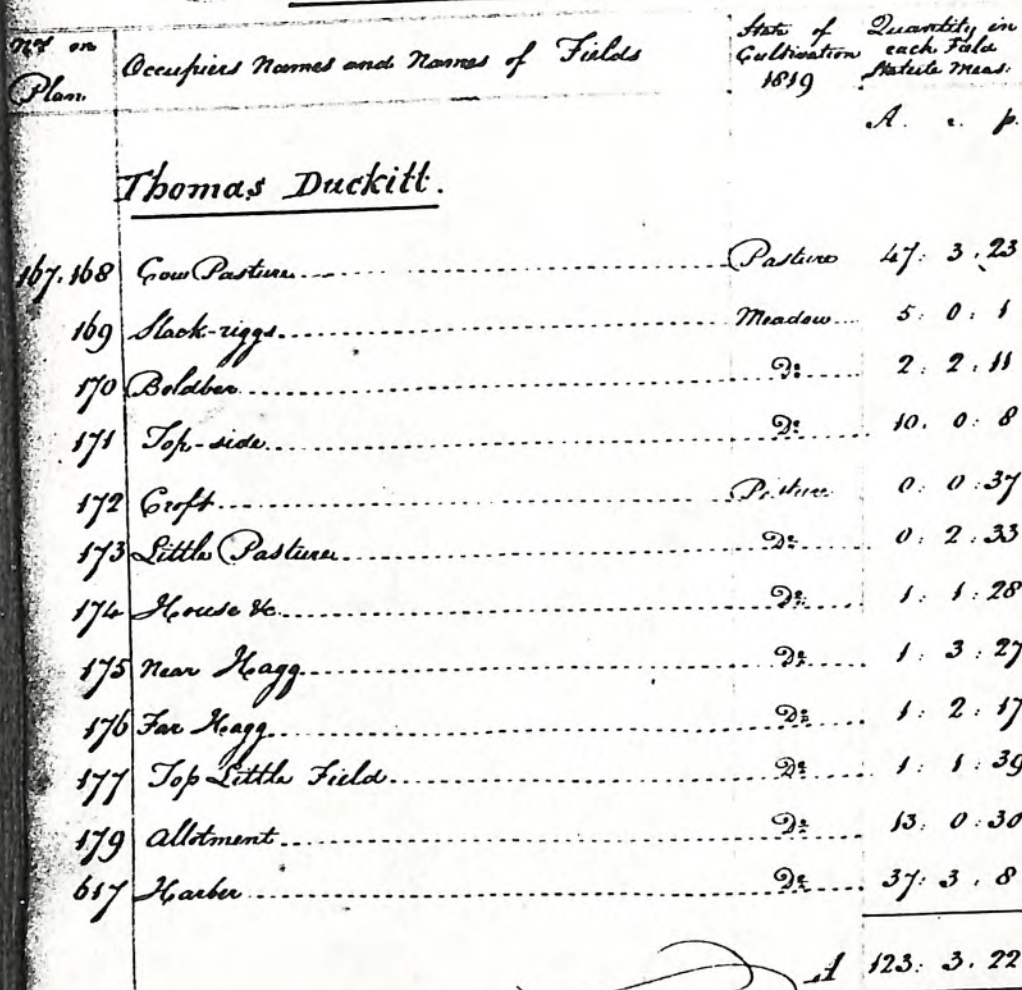 Nos on Plan. Occupiers Names and Names of Fields State of Cultivation 1819 Quantity in each Field Statute Meas:
A. r. p.
Thomas Duckitt.
167.168 Cow Pasture Pasture 47: 3. 23
169 Slack-riggs Meadow 5: 0: 1
170 Boldber Do 2: 2: 11
171 Top-side Do 10. 0: 8
172 Croft Pasture 0: 0: 37
173 Little Pasture Do 0: 2: 33
174 House &c. Do 1: 1: 28
175 Near Hagg Do 1: 3: 27
176 Far Hagg Do 1: 2: 17
177 Top Little Field Do 1: 1: 39
179 Allotment Do 13: 0: 30
617 Harber Do 37: 3. 8
A 123: 3. 22